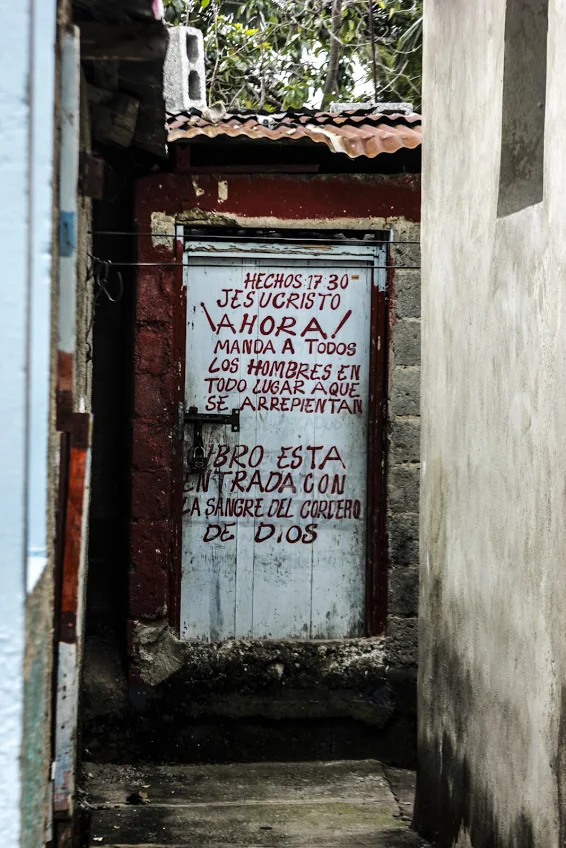 HECHOS:17 30
JESUCRISTO
¡AHORA!
MANDA A TODOS
LOS HOMBRES EN
TODO LUGAR A QUE
SE ARREPIENTAN
UBRO ESTA
ENTRADA CON
LA SANGRE DEL CORDERO
DE DIOS